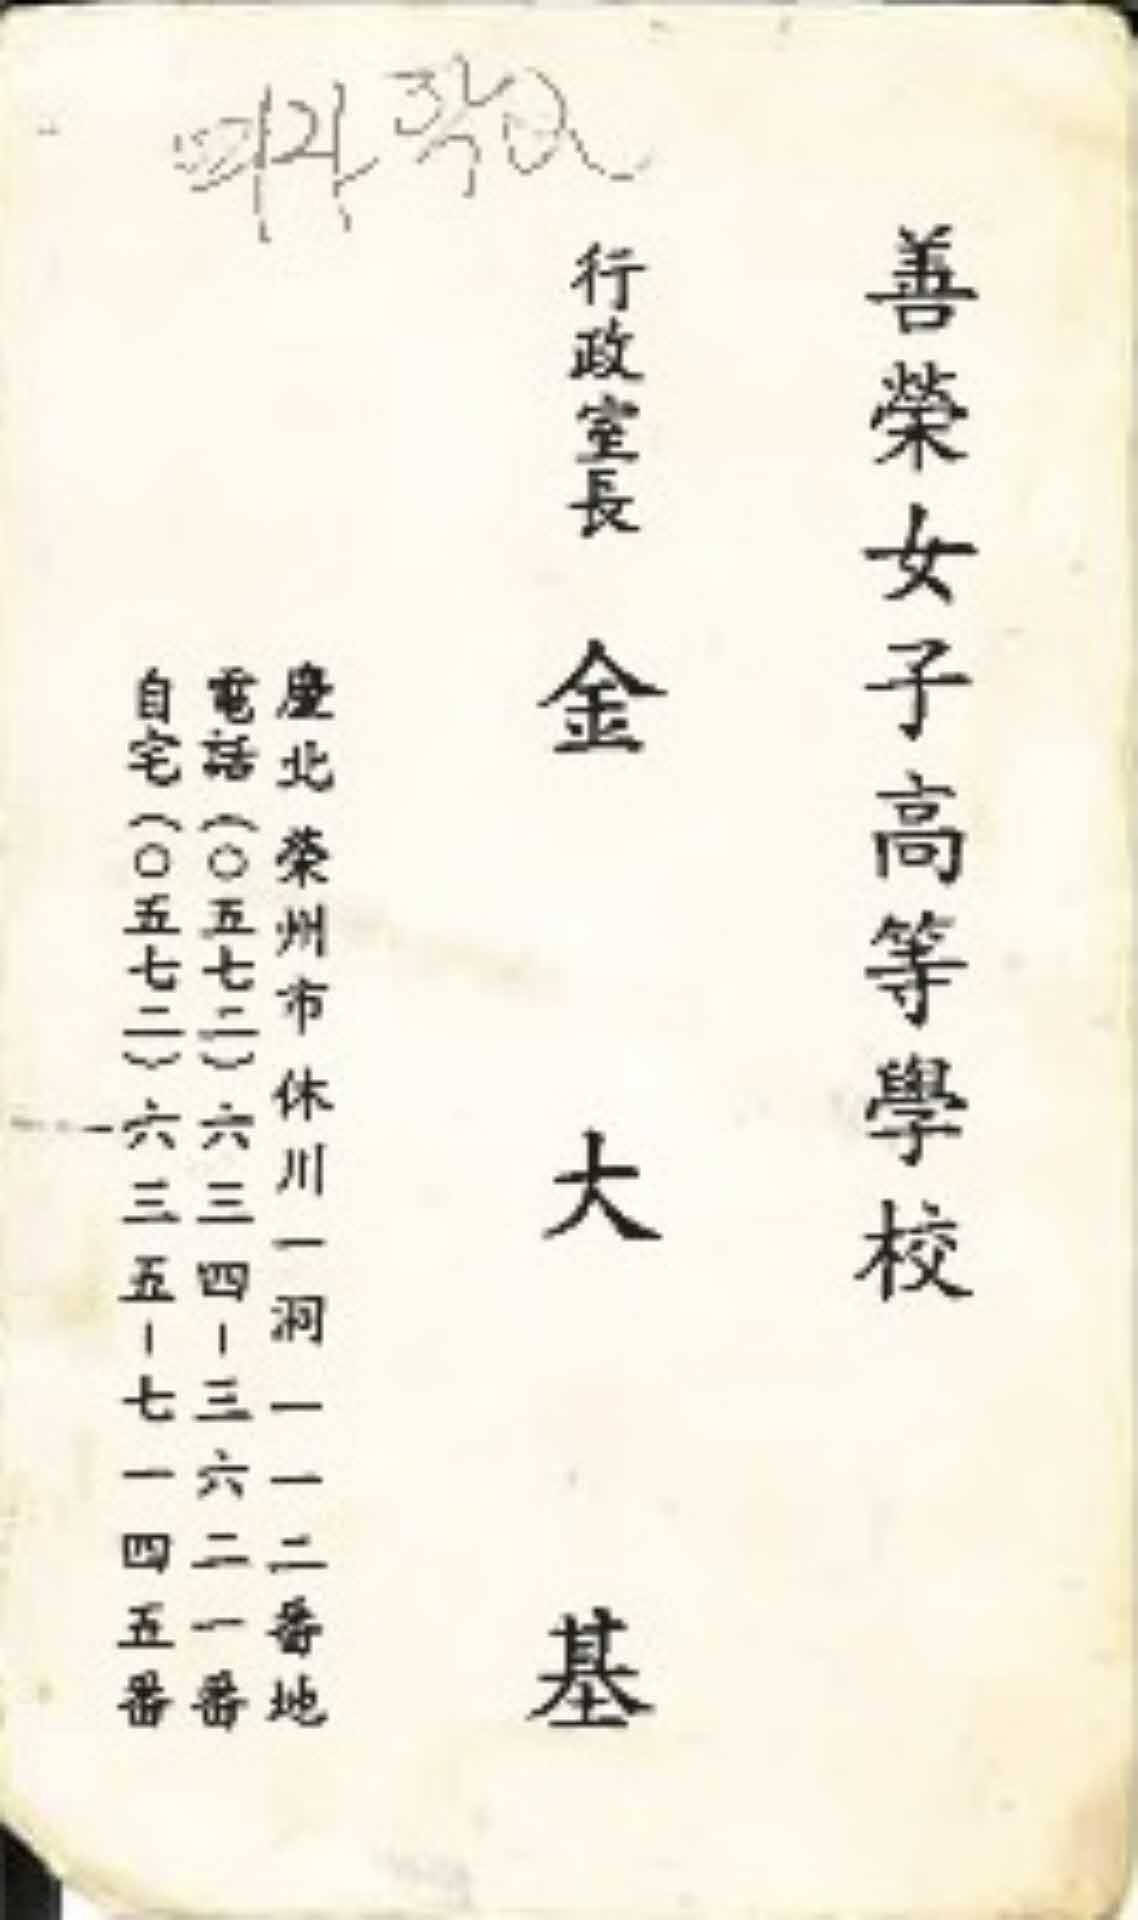 善榮女子高等學校
行政室長 金大基
慶北榮州市休川一洞一一二番地
電話(〇五七二)六三四-三六二一番
自宅(〇五七二)六三五-七一四五番